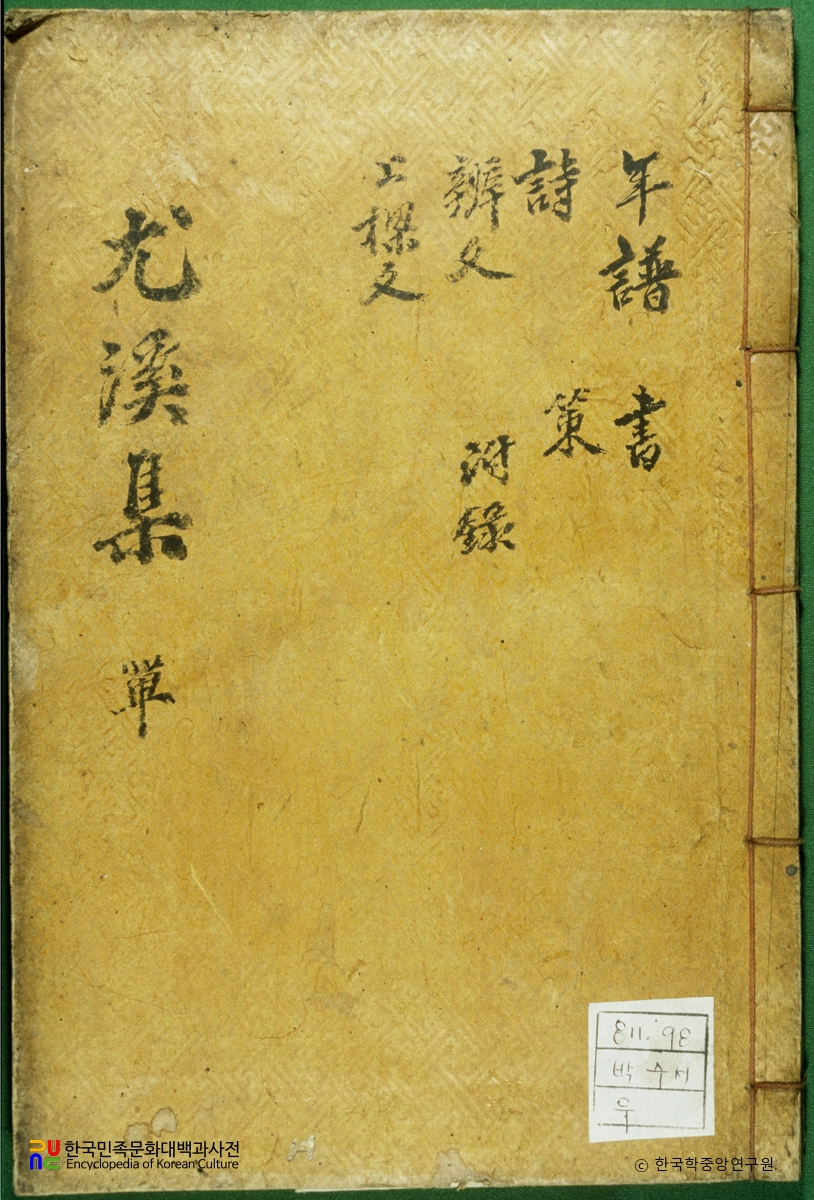 年譜 書
詩 策
辨文 附錄
上樑文
尤溪集 單
811.98
박수서
우
한국민족문화대백과사전
Encyclopedia of Korean Culture
© 한국학중앙연구원